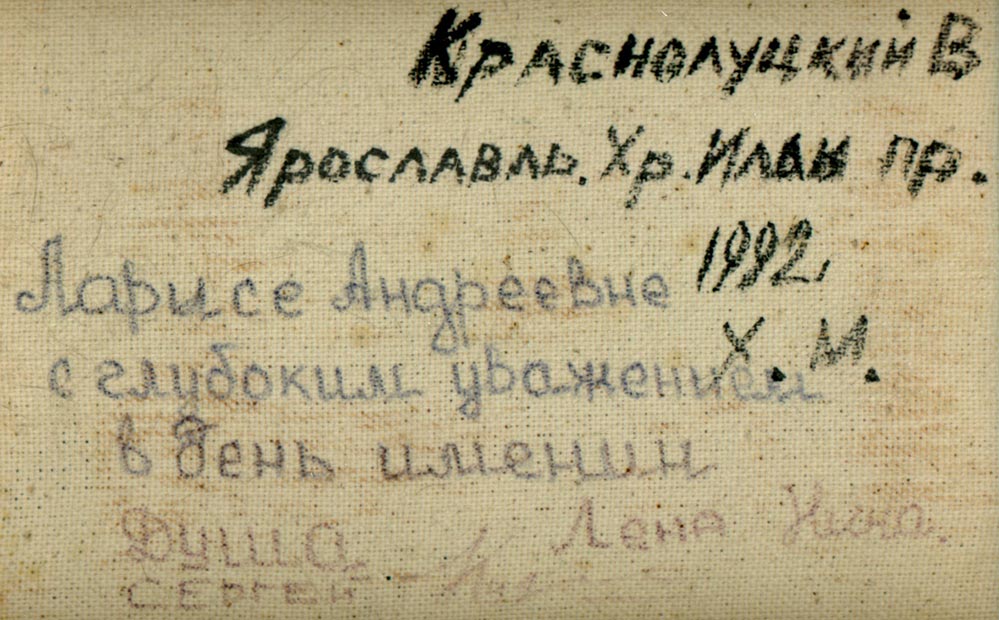 Краснолуцкий В
Ярославль. Хр. Илии пр.
1992.
Х. М.
Ларисе Андреевне
с глубоким уважением
в день именин
Душа Лена
Сергей